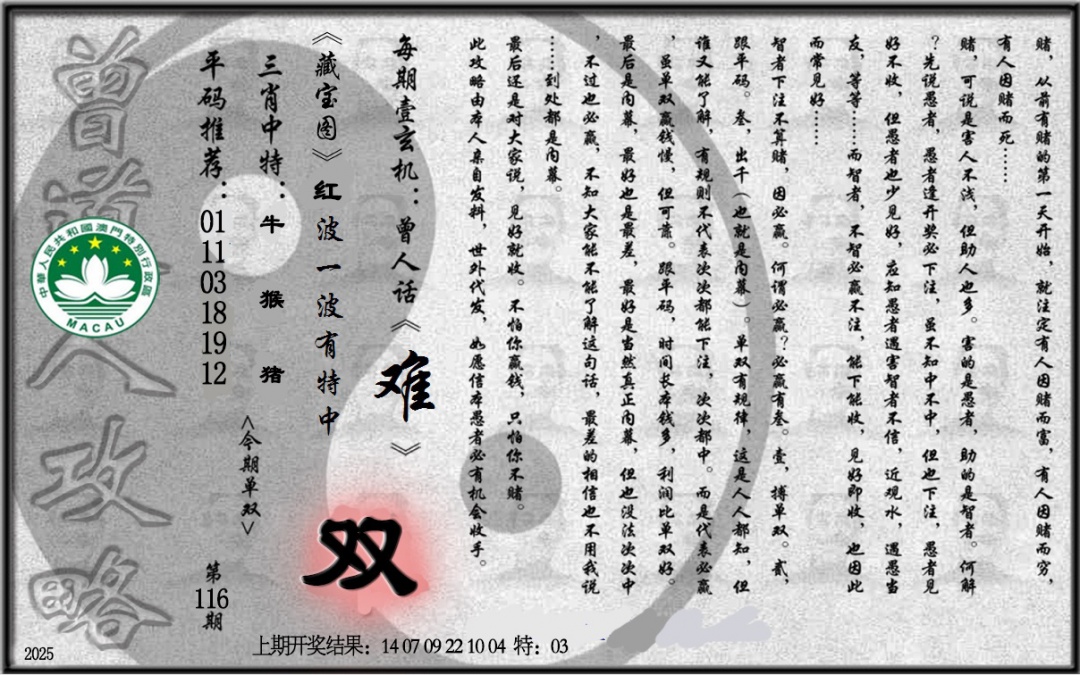 赌，从前有赌的第一天开始，就注定有人因赌而富，有人因赌而穷，
有人因赌而死……
赌，可说是害人不浅，但助人也多。害的是愚者，助的是智者。何解
？先说愚者，愚者逢开奖必下注，虽不知中不中，但也下注，愚者见
好不收，但愚者也少见好，应知愚者遇害智者不信，近观水，遇愚当
友，等等……而智者，不智必赢不注，能下能收，见好即收，也因此
而常见好……
智者下注不算赌，因必赢。何谓必赢？必赢有叁。壹，搏单双。贰，
跟平码。叁，出千（也就是内幕）。单双有规律，这是人人都知，但
谁又能了解，有规则不代表次次都能下注，次次都中。而是代表必赢
，虽单双赢钱慢，但可靠。跟平码，时间长本钱多，利润比单双好。
最后是内幕，最好也是最差，最好是当然真正内幕，但也没法次次中
，不过也必赢，不知大家能不能了解这句话，最差的相信也不用我说
……到处都是内幕。
最后还是对大家说，见好就收。不怕你赢钱，只怕你不赌。
此攻略由本人亲自发料，世外代发，如愿信本愚者必有机会收手。
每期壹玄机：曾人话《难》
《藏宝图》红波一波有特中
双
三肖中特：牛猴猪
<今期单双>
平码推荐：01 11 03 18 19 12
第116期
曾道人攻略
中華人民共和國澳門特別行政區
MACAU
2025
上期开奖结果：14 07 09 22 10 04 特：03